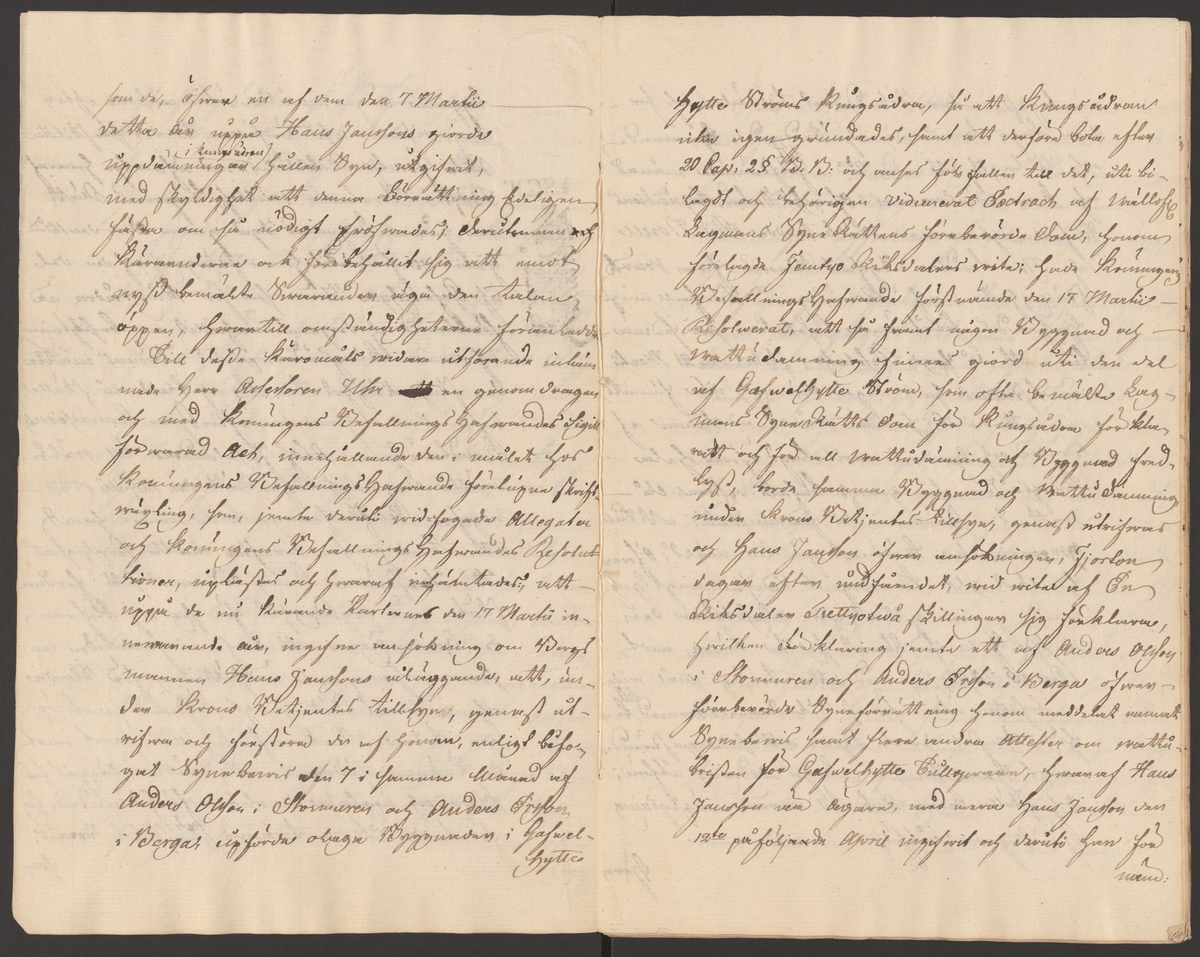 som de, öfwer en af dem den 7 Martii
detta år uppå Hans Janssons giorde
uppdämningar i Kungsådran hållen Syn, utgifwit,
med skyldighet att denna Förrättning Edeligen
fästa om så nödigt pröfwades; derutinnan och
Kärnenderne ock förbehållit sig att emot
nyss bemälte Swarander äga den talan
öppen, hwartill omständigheterne föranledde
Till desse Käromåls widare utförande inläm
nade Herr Assessoren Uhr en genomdragen
och med Konungens Befallnings Hafwandes Sigill
förwarad Act, innehållande den i målet hos
Konungens Befallnings Hafwande förelupne skrift
wäxling, som, jemte deruti widfogade Allegater
och Konungens Befallnings Hafwandes Resolu
tioner, uplästes och hwaraf inhämtades; att
uppå de nu Kärande Parternes den 17 Martii in-
newarande år, ingifne ansökning om Bergs
mannen Hans Janssons åläggande, att, un-
der Krono Betjentes tillsyn, genast ut-
rifwa och förstöra de af honom, enligt bifo-
gat Synebewis den 7 i samma Månad af
Anders Olsson i Stormuren och Anders Ersson
i Berga, upförde olaga Byggnader i Gafwel-
hytte
Hytte Ströms Kungsådra, så att Kungsådran
icke igen gründades, samt att derföre bota efter
20 Cap. 2 § B. B. och anses för fallen till det, uti bi-
lagdt och behörigen vidimerat Extract af Wällofl
Lagmans Syne Rättens förberörde Dom, honom
förelagde Femtyo Riksdalers wite; hade Konungens
Befallnings Hafwande förstnämde den 17 Martii
Resolwerat, att så framt någon Byggnad och
wattudämning finnes giord uti den del
af Gafwelhytte Ström, som ofta bemälte Lag-
mans Syne Rätts Dom för Kungsådra förkla-
rat och för all wattudämning och Byggnad fred-
lyst, borde samma Byggnad och Wattudämning
under Krono Betjentes tillsyn, genast utrifwas
och Hans Jansson öfwer ansökningen, Fjorton
dagar efter undfåendet, wid wite af En
Riksdaler Trettyotwå skillingar sig förklara,
hwilken Förklaring jemte ett af Anders Olsson
i Stormuren och Anders Ersson i Berga öfwer
förberörde Syneförrättning honom meddelat annat
Synebewis samt flere andra Attester om wattu-
bristen för Gafwelhytte Tullqwarn, hwaraf Hans
Jansson är ägare, med mera Hans Jansson den
12te påföljande April ingifwit och deruti han för
mäld: